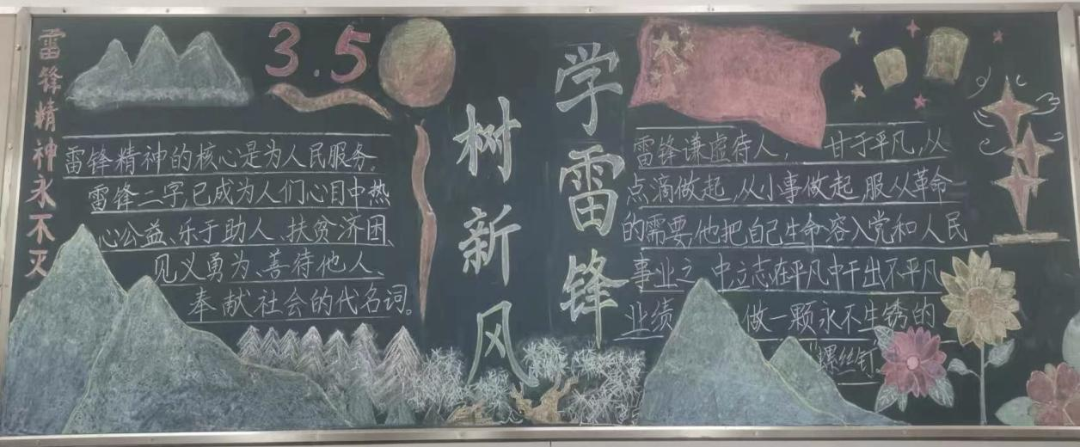 雷锋精神永不灭
3.5
雷锋精神的核心是为人民服务，
雷锋二字，已成为人们心目中热
心公益、乐于助人、扶贫济困、
见义勇为、善待他人、
奉献社会的代名词。
学雷锋
树新风
雷锋谦虚待人， 甘于平凡，从
点滴做起，从小事做起，服从革命
的需要，他把自己生命容入党和人民
事业之中，立志在平凡中干出不平凡
业绩 做一颗永不生锈的
"螺丝钉"